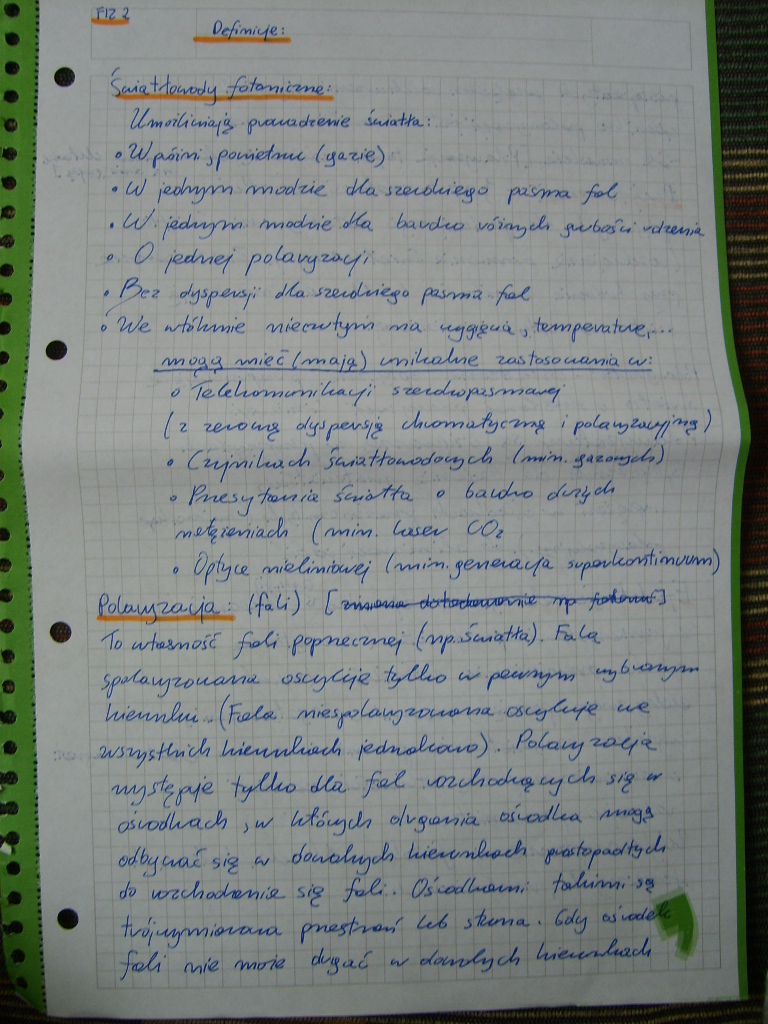 FIZ 2
Definicje:
Światłowody fotoniczne:
Umożliwiają prowadzenie światła:
• W próżni, powietrzu (gazie)
• W jednym modzie dla szerokiego pasma fal
• W jednym modzie dla bardzo różnych grubości rdzenia
• O jednej polaryzacji
• Bez dyspersji dla szerokiego pasma fal
• We włóknie nieczułym na zgięcia, temperaturę,...
mogą mieć (mają) unikalne zastosowania w:
• Telekomunikacji szerokopasmowej
(z zerową dyspersją chromatyczną i polaryzacyjną)
• Czujnikach światłowodowych (min. gazowych)
• Przesyłania światła o bardzo dużych
natężeniach (min. laser CO2
• Optyce nieliniowej (min. generacja superkontinuum)
Polaryzacja: (fali) [
To własność fali poprzecznej (np. światła). Fala
spolaryzowana oscyluje tylko w pewnym wybranym
kierunku. (Fala niespolaryzowana oscyluje we
wszystkich kierunkach jednakowo). Polaryzacja
występuje tylko dla fal rozchodzących się w
ośrodkach, w których drgania ośrodka mogą
odbywać się w dowolnych kierunkach prostopadłych
do rozchodzenia się fali. Ośrodkami takimi są
trójwymiarowa przestrzeń lub struna. Gdy ośrodek
fali nie może drgać w dowolnych kierunkach